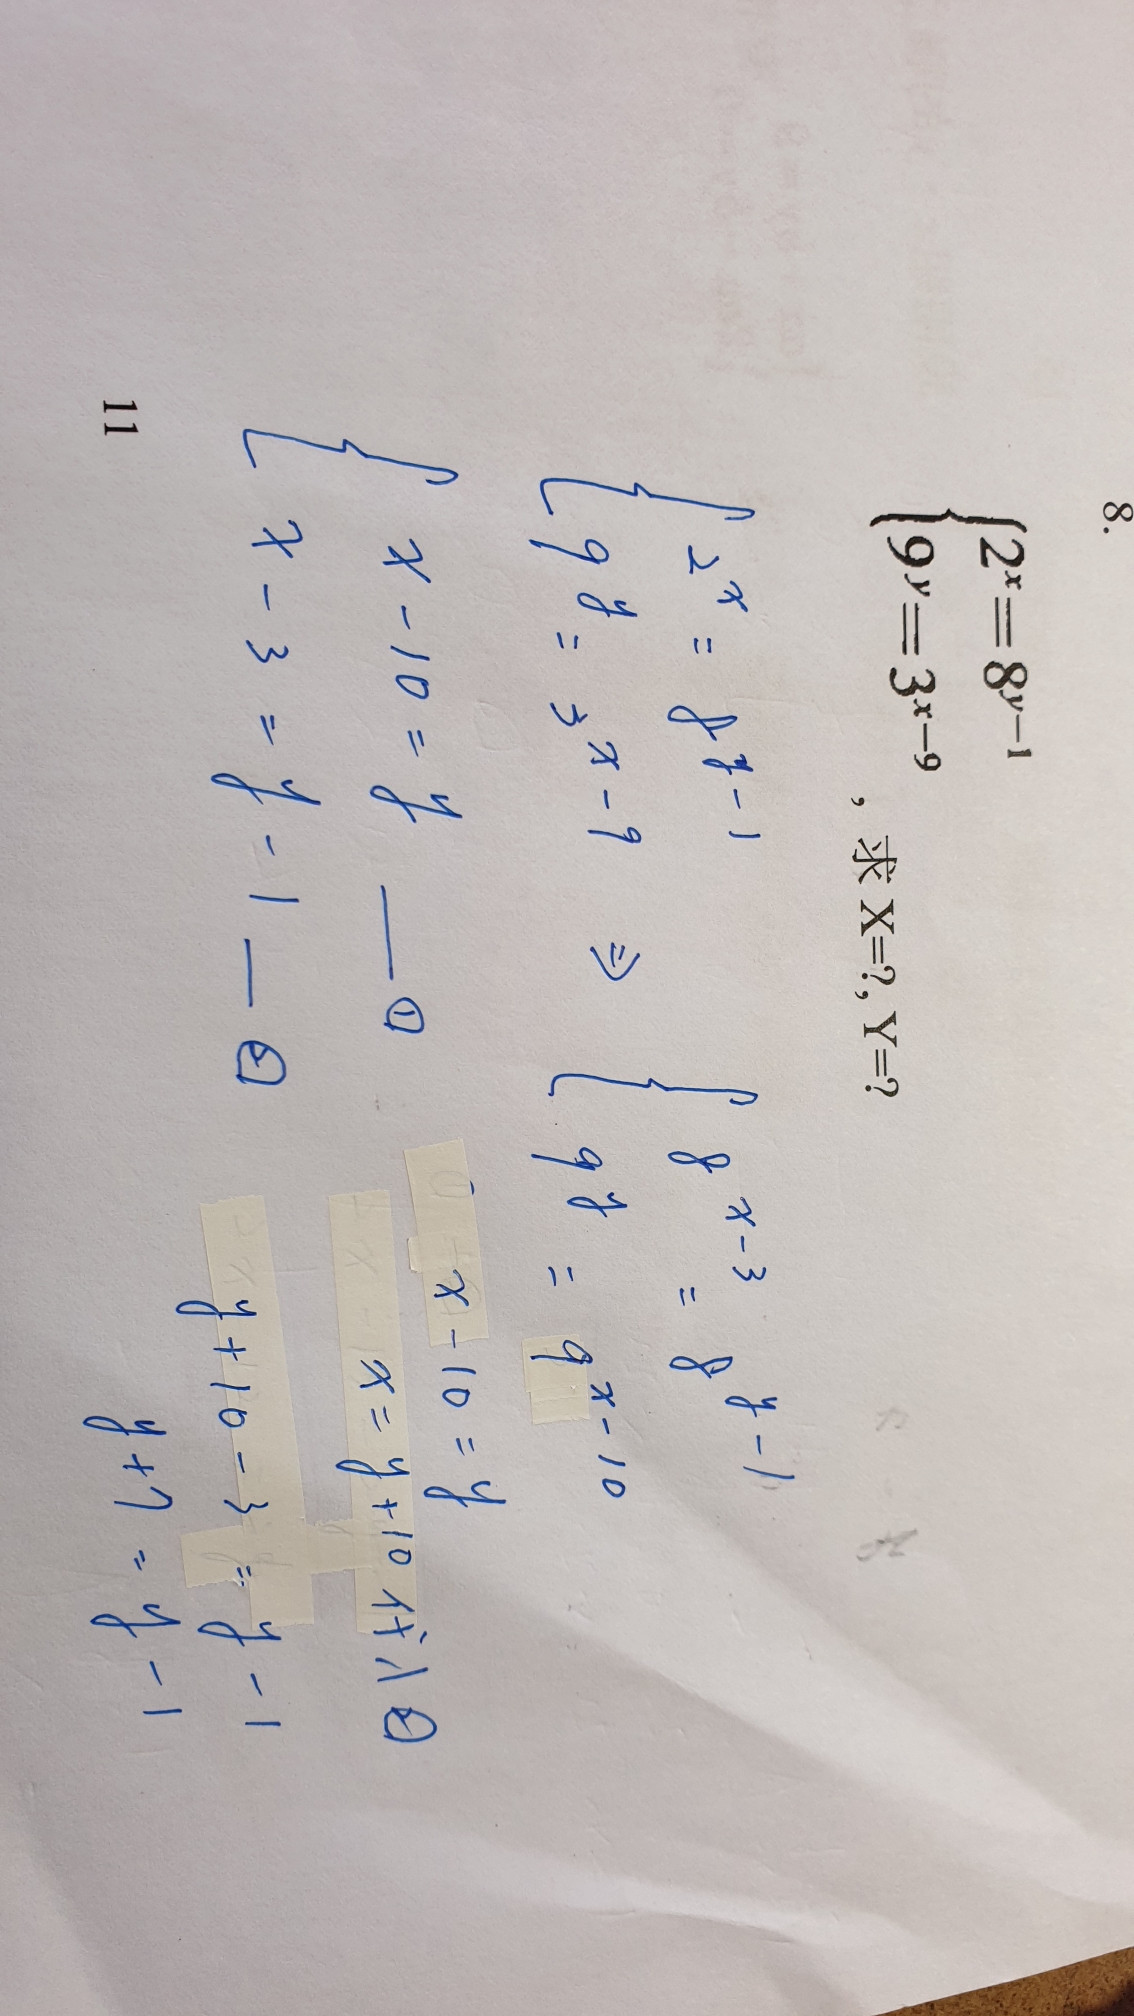 8.
2ˣ=8ʸ⁻¹
9ʸ=3ˣ⁻⁹
, 求 X=?, Y=?
2ˣ = 8ʸ⁻¹
9ʸ = 3ˣ⁻⁹
⇒
8ˣ⁻³ = 8ʸ⁻¹
9ʸ = 9ˣ⁻¹⁰
x-10=y —①
x-3=y-1—②
x-10=y
x=y+10代入②
y+10-3=y-1
y+7=y-1
11